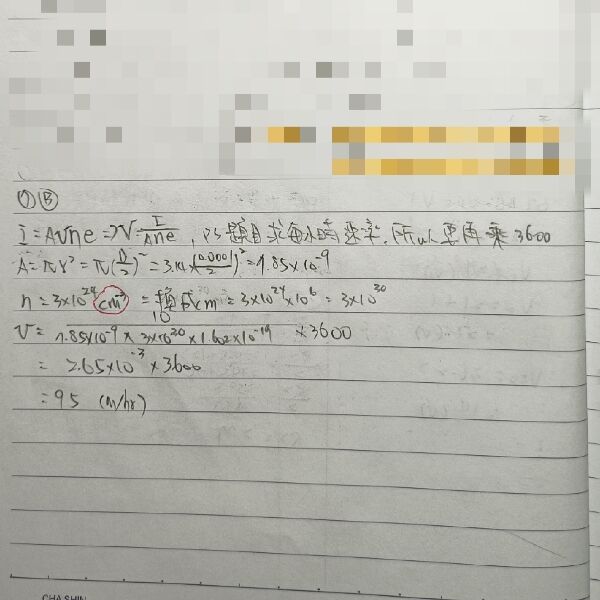 ① Ⓑ
I=AVne=>V=I/Ane, 題目求每小時的速率.所以要再乘3600
A=πr²=π(D/2)²=3.14×(0.0001/2)²=7.85×10⁻⁹
n=3×10²⁴ cm⁻³ =換成cm=3×10²⁴×10⁶=3×10³⁰
V=10/7.85×10⁻⁹×3×10³⁰×1.602×10⁻¹⁹ ×3600
=2.65×10⁻³×3600
=95 (m/hr)
CHASHIN